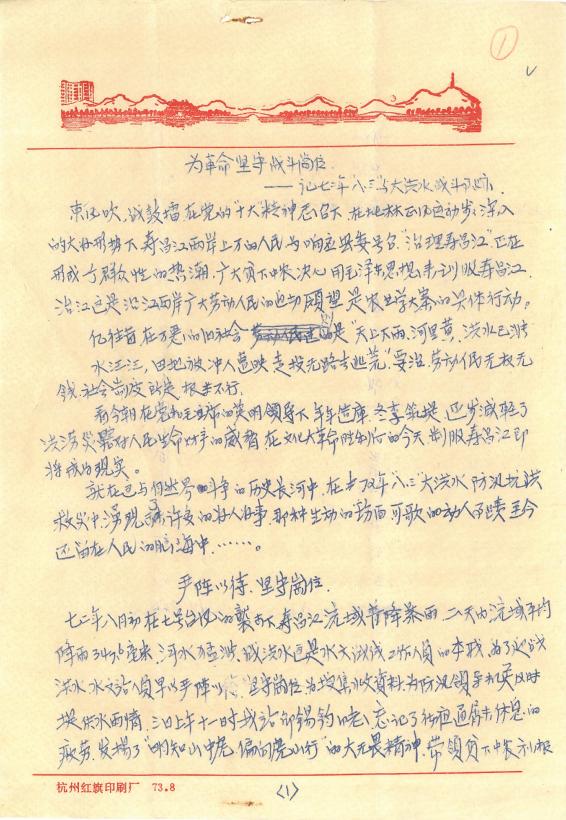 1
为革命坚守战斗岗位
——记七二年"八三"特大洪水战斗
东风吹,战鼓擂,在党的"十大"精神 下,在批林 运动步步深入
的大好形势下,寿昌江两岸上下的人民 响应县委号召,"治理寿昌江"正在
形成了群众性的热潮,广大贫下中农决心用毛泽东思想 寿昌江,
治江这是沿江两岸广大劳动人民的迫切愿望,是农业学大寨的具体行动。
忆往昔,在万恶的旧社会 是"天上下雨,河里 ,洪水
水汪汪,田地被冲人遭殃,走投无路去逃荒。" 劳动人民无权无
钱,社会制度 根本不行。
看今朝,在党和毛主席的英明领导下,年年造库,冬季筑堤,逐步减轻了
洪涝灾 对人民生命财产的威胁,在文化大革命胜利后的今天,制服寿昌江即
将成为现实。
就在这与自然界斗争的历史长河中,在去 年"八三"大洪水,防汛抗洪
救灾中,涌现了许许多多的好人好事,那种生动的场面,可歌的动人事迹至今
还留在人民的脑海中……。
严阵以待,坚守岗位。
七二年八月初,在七号台风的袭击下,寿昌江流域普降暴雨,二天内流域平均
降雨 毫米,河水猛涨, 洪水这是水文测站工作人员的本职,为了迎战
洪水,水文站人员早以严阵以待,坚守岗位,为搜集水文资料,为防汛领导机关及时
提供水雨情,三日上午十一时,我站邹锡钧 ,忘记了彻夜通宵未休息的
疲劳,发扬了"明知山中虎,偏向虎山行"的大无畏精神,带领贫下中农
杭州红旗印刷厂 73.8
〈1〉